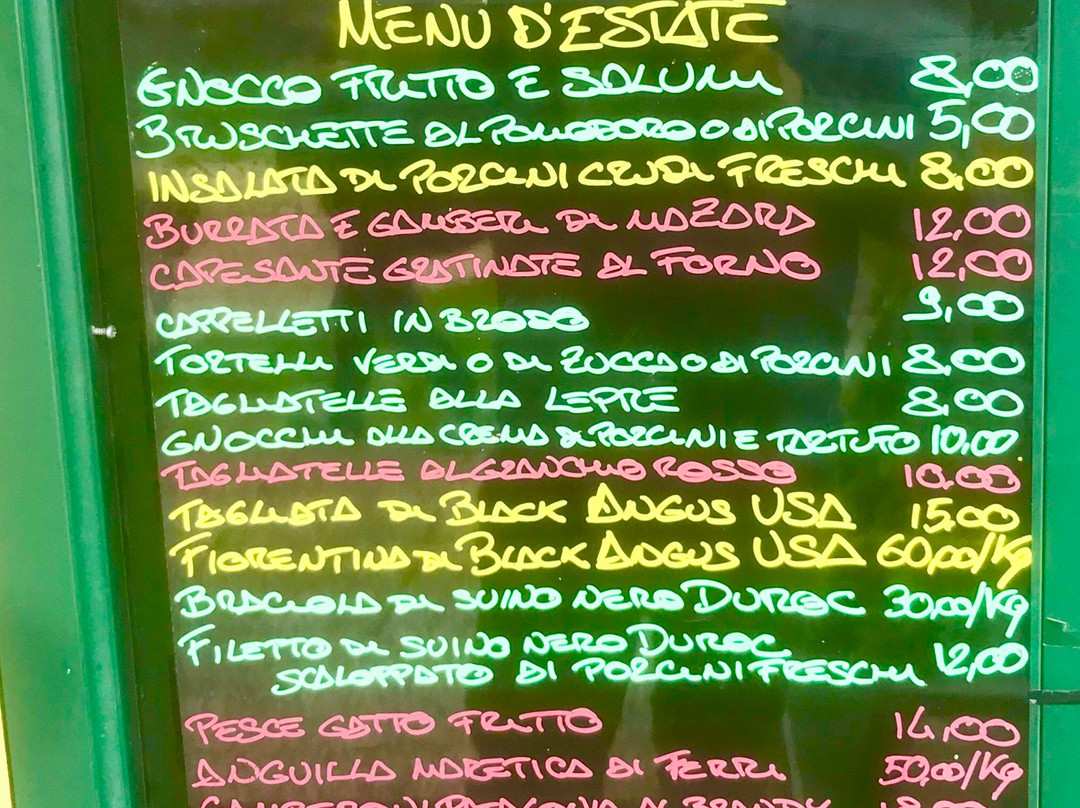 MENU D'ESTATE
GNOCCO FRITTO E SALUMI 8,00
BRUSCHETTE AL POMODORO O AI PORCINI 5,00
INSALATA DI PORCINI CRUDI FRESCHI 8,00
BURRATA E GAMBERI DI MAZARA 12,00
CAPESANTE GRATINATE AL FORNO 12,00
CAPPELLETTI IN BRODO 9,00
TORTELLI VERDI O DI ZUCCA O AI PORCINI 8,00
TAGLIATELLE ALLA LEPRE 8,00
GNOCCHI ALLA CREMA DI PORCINI E TARTUFO 10,00
TAGLIATELLE AL GRANCHIO ROSSO 10,00
TAGLIATA DI BLACK ANGUS USA 15,00
FIORENTINA DI BLACK ANGUS USA 60,00/Kg
BRACIOLA DI SUINO NERO DUROC 30,00/Kg
FILETTO DI SUINO NERO DUROC
SCALOPPATO AI PORCINI FRESCHI 12,00
PESCE GATTO FRITTO 14,00
ANGUILLA MARETICA AI FERRI 50,00/Kg